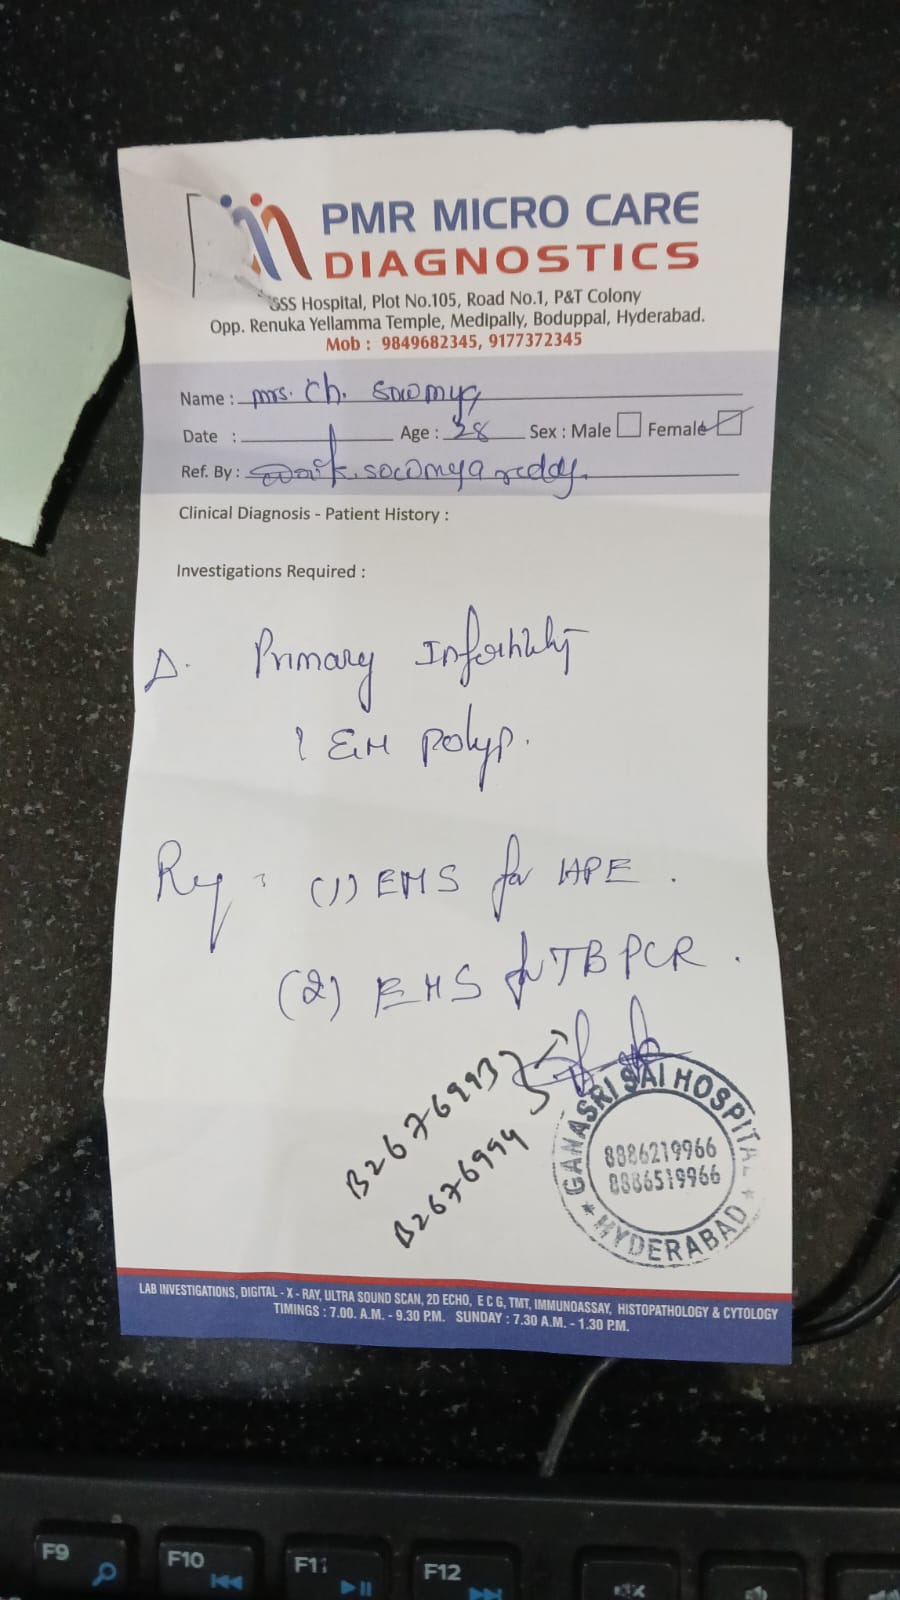 PMR MICRO CARE
DIAGNOSTICS
SSS Hospital, Plot No.105, Road No.1, P&T Colony
Opp. Renuka Yellamma Temple, Medipally, Boduppal, Hyderabad.
Mob : 9849682345, 9177372345
Name : Mrs. Ch. Sowmya
Date : Age : 28 Sex : Male Female
Ref. By : K. Sowmya reddy.
Clinical Diagnosis - Patient History :
Investigations Required :
Δ. Primary Infertility
? EM polyp.
Req : (1) EMS for HPE.
(2) EMS for TB PCR.
B2676993
B2676994
GANASRI SAI HOSPITAL
8886219966
8886519966
* HYDERABAD *
LAB INVESTIGATIONS, DIGITAL - X - RAY, ULTRA SOUND SCAN, 2D ECHO, E C G, TMT, IMMUNOASSAY, HISTOPATHOLOGY & CYTOLOGY
TIMINGS : 7.00. A.M. - 9.30 P.M. SUNDAY : 7.30 A.M. - 1.30 P.M.
F9
F10
F11
F12